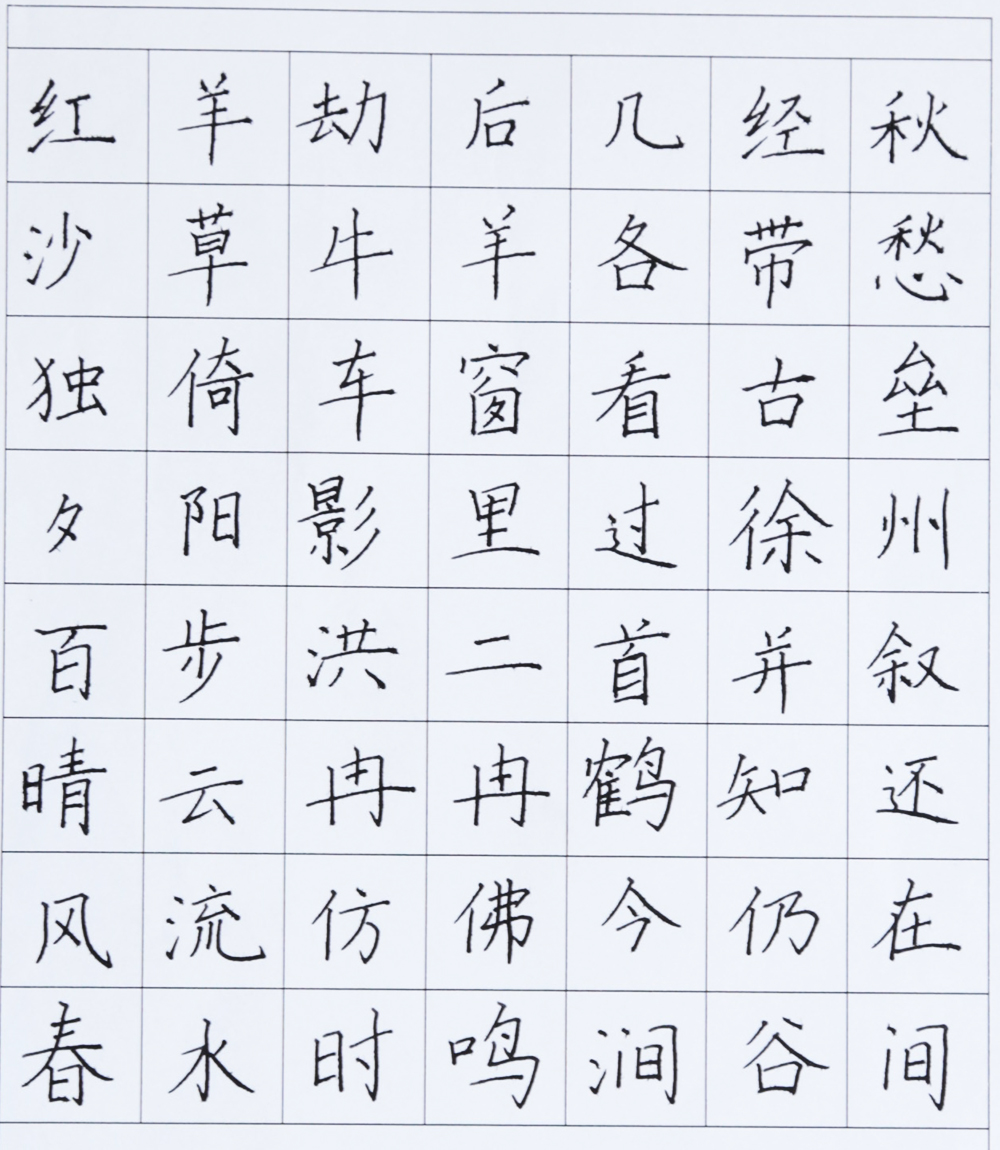 红羊劫后几经秋
沙草牛羊各带愁
独倚车窗看古垒
夕阳影里过徐州
百步洪二首并叙
晴云冉冉鹤知还
风流仿佛今仍在
春水时鸣涧谷间